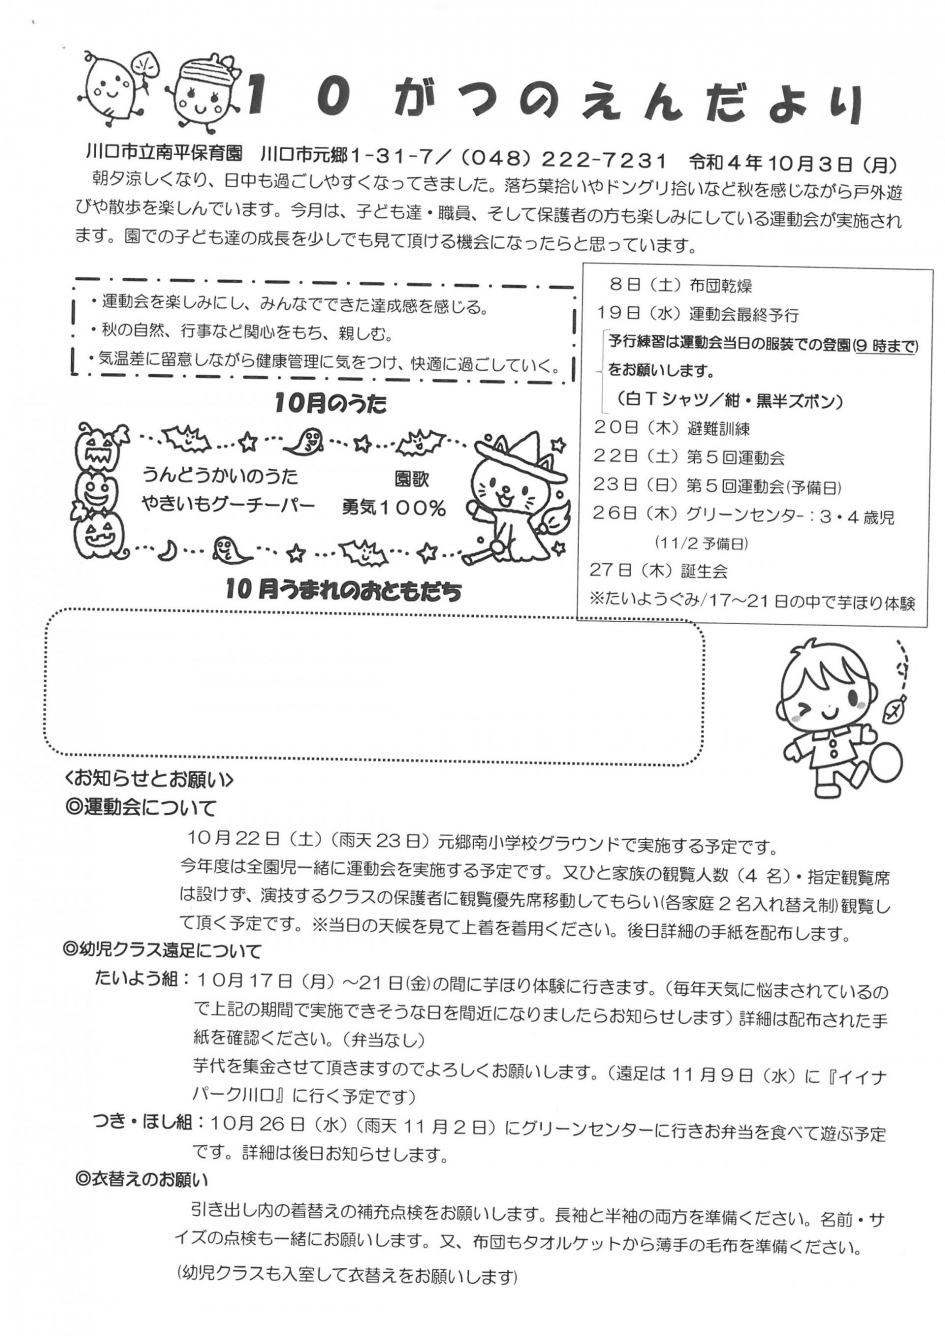 10がつのえんだより
川口市立南平保育園　川口市元郷1-31-7／（048）222-7231　令和4年10月3日（月）
朝夕涼しくなり、日中も過ごしやすくなってきました。落ち葉拾いやドングリ拾いなど秋を感じながら戸外遊
びや散歩を楽しんでいます。今月は、子ども達・職員、そして保護者の方も楽しみにしている運動会が実施され
ます。園での子ども達の成長を少しでも見て頂ける機会になったらと思っています。
・運動会を楽しみにし、みんなでできた達成感を感じる。
・秋の自然、行事など関心をもち、親しむ。
・気温差に留意しながら健康管理に気をつけ、快適に過ごしていく。
10月のうた
うんどうかいのうた　園歌
やきいもグーチーパー　勇気100%
10月うまれのおともだち
8日（土）布団乾燥
19日（水）運動会最終予行
予行練習は運動会当日の服装での登園(9時まで)
をお願いします。
（白Tシャツ／紺・黒半ズボン）
20日（木）避難訓練
22日（土）第5回運動会
23日（日）第5回運動会(予備日)
26日（木）グリーンセンター：3・4歳児
(11/2予備日)
27日（木）誕生会
※たいようぐみ/17～21日の中で芋ほり体験
<お知らせとお願い>
◎運動会について
10月22日（土）（雨天23日）元郷南小学校グラウンドで実施する予定です。
今年度は全園児一緒に運動会を実施する予定です。又ひと家族の観覧人数（4名）・指定観覧席
は設けず、演技するクラスの保護者に観覧優先席移動してもらい(各家庭2名入れ替え制)観覧し
て頂く予定です。※当日の天候を見て上着を着用ください。後日詳細の手紙を配布します。
◎幼児クラス遠足について
たいよう組：10月17日（月）～21日(金)の間に芋ほり体験に行きます。（毎年天気に悩まされているの
で上記の期間で実施できそうな日を間近になりましたらお知らせします）詳細は配布された手
紙を確認ください。（弁当なし）
芋代を集金させて頂きますのでよろしくお願いします。（遠足は11月9日（水）に『イイナ
パーク川口』に行く予定です）
つき・ほし組：10月26日（水）（雨天11月2日）にグリーンセンターに行きお弁当を食べて遊ぶ予定
です。詳細は後日お知らせします。
◎衣替えのお願い
引き出し内の着替えの補充点検をお願いします。長袖と半袖の両方を準備ください。名前・サ
イズの点検も一緒にお願いします。又、布団もタオルケットから薄手の毛布を準備ください。
(幼児クラスも入室して衣替えをお願いします)